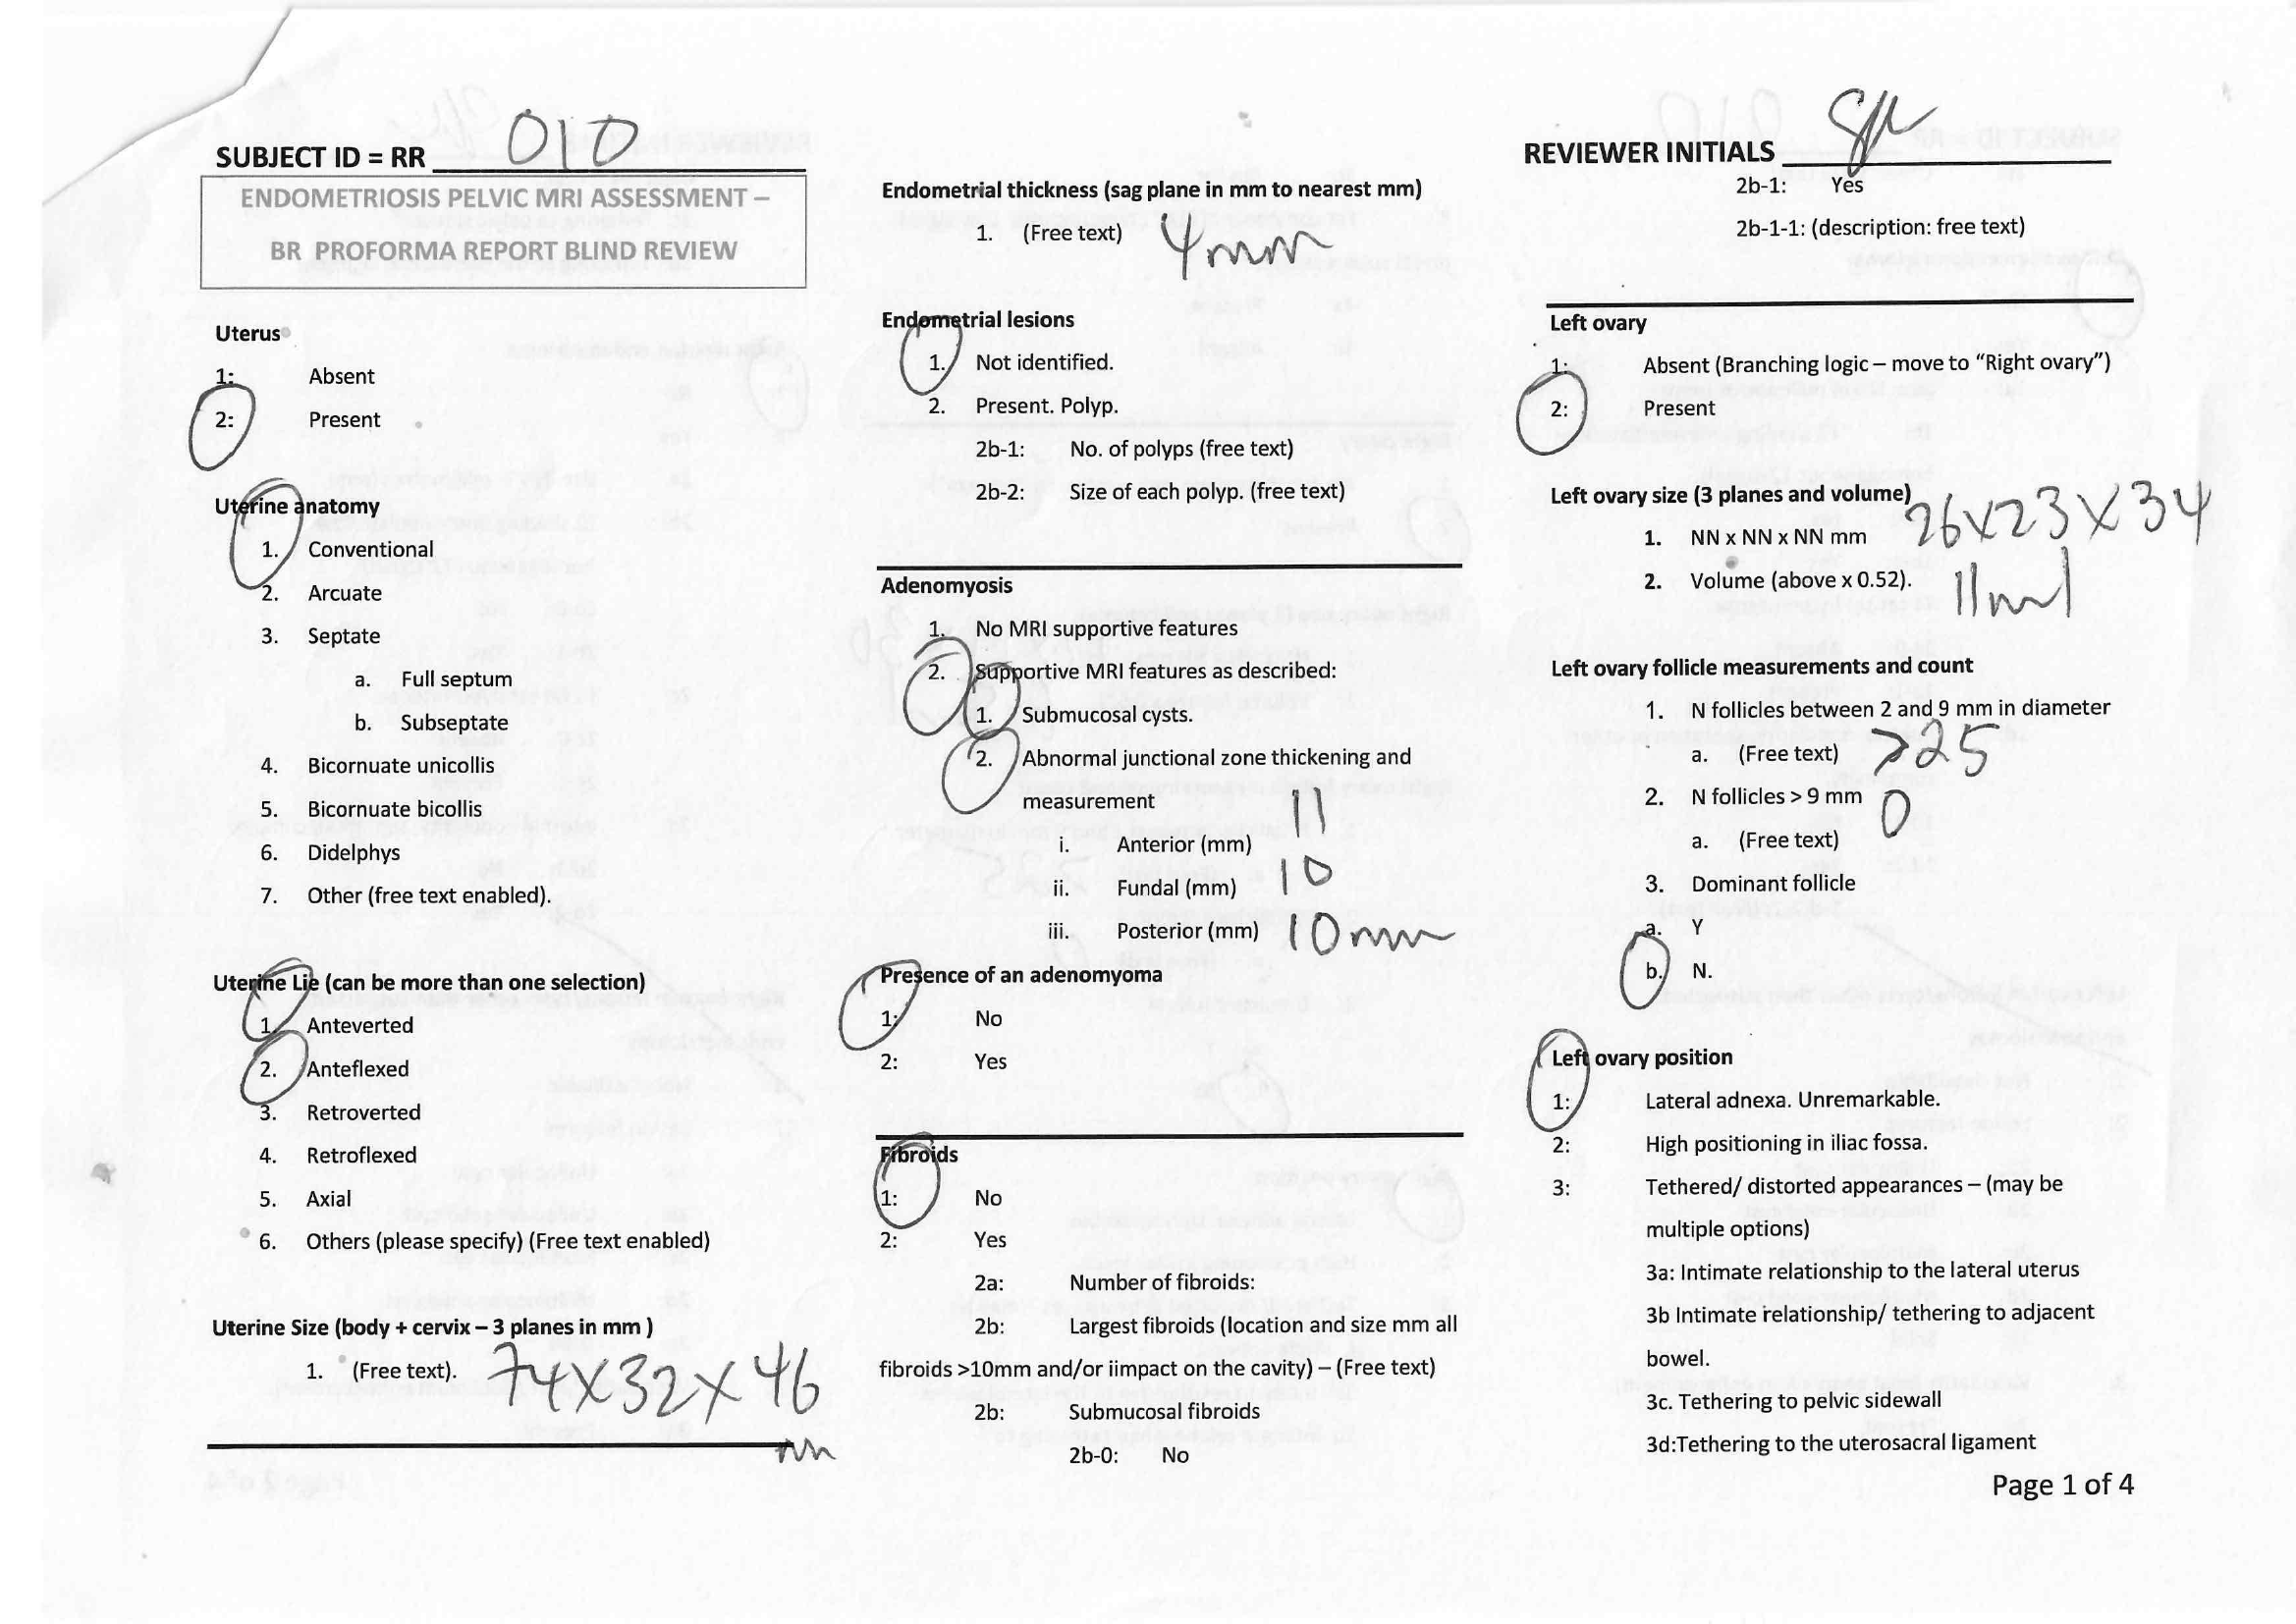 SUBJECT ID = RR 010
ENDOMETRIOSIS PELVIC MRI ASSESSMENT –
BR PROFORMA REPORT BLIND REVIEW
Uterus
1: Absent
2: Present
Uterine anatomy
1. Conventional
2. Arcuate
3. Septate
a. Full septum
b. Subseptate
4. Bicornuate unicollis
5. Bicornuate bicollis
6. Didelphys
7. Other (free text enabled).
Uterine Lie (can be more than one selection)
1. Anteverted
2. Anteflexed
3. Retroverted
4. Retroflexed
5. Axial
6. Others (please specify) (Free text enabled)
Uterine Size (body + cervix – 3 planes in mm )
1. (Free text). 74X32X46
mm
Endometrial thickness (sag plane in mm to nearest mm)
1. (Free text) 4mm
Endometrial lesions
1. Not identified.
2. Present. Polyp.
2b-1: No. of polyps (free text)
2b-2: Size of each polyp. (free text)
Adenomyosis
1. No MRI supportive features
2. Supportive MRI features as described:
1. Submucosal cysts.
2. Abnormal junctional zone thickening and
measurement
i. Anterior (mm) 11
ii. Fundal (mm) 10
iii. Posterior (mm) 10mm
Presence of an adenomyoma
1: No
2: Yes
Fibroids
1: No
2: Yes
2a: Number of fibroids:
2b: Largest fibroids (location and size mm all
fibroids >10mm and/or iimpact on the cavity) – (Free text)
2b: Submucosal fibroids
2b-0: No
REVIEWER INITIALS
2b-1: Yes
2b-1-1: (description: free text)
Left ovary
1: Absent (Branching logic – move to “Right ovary”)
2: Present
Left ovary size (3 planes and volume)
1. NN x NN x NN mm 26X23X34
2. Volume (above x 0.52). 11ml
Left ovary follicle measurements and count
1. N follicles between 2 and 9 mm in diameter
a. (Free text) >25
2. N follicles > 9 mm 0
a. (Free text)
3. Dominant follicle
a. Y
b. N.
Left ovary position
1: Lateral adnexa. Unremarkable.
2: High positioning in iliac fossa.
3: Tethered/ distorted appearances – (may be
multiple options)
3a: Intimate relationship to the lateral uterus
3b Intimate relationship/ tethering to adjacent
bowel.
3c. Tethering to pelvic sidewall
3d:Tethering to the uterosacral ligament
Page 1 of 4